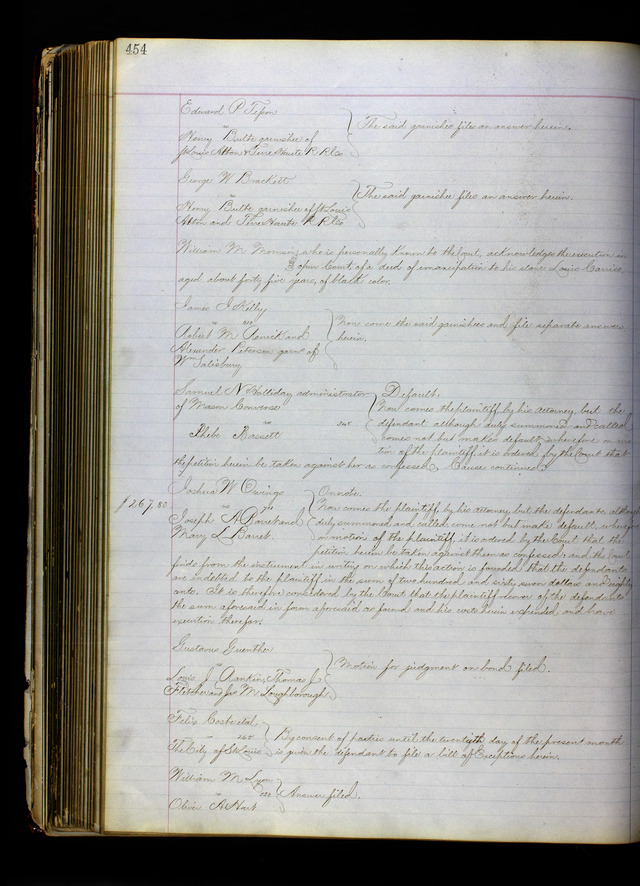 454
Edward P. Tesson
vs
Henry Bulte garnishee of
St Louis Alton & Terre Haute R R Co
The said garnishee files an answer herein.
George W Brackett
vs
Henry Bulte garnishee of St Louis
Alton and Terre Haute R. R. Co
The said garnishee files an answer herein.
William M. who is personally known to the Court, acknowledges the execution in
open Court, of a deed of emancipation to his slave Louis
aged about forty five years, of black color.
James J Kelly
vs
Robert M and
Alexander Peterson garns of
Wm Salisbury
Now come the said garnishees and file separate answers
herein.
Samuel N Holliday administrator
of Mason Converse
vs
Phebe Bassett
Default.
Now comes the plaintiff by his attorney, but the
defendant although duly summoned and called
comes not but makes default; wherefore on mo
tion of the plaintiff, it is ordered by the Court that
the petition herein be taken against her as confessed. Cause continued.
$267.80
Joshua W Owings
vs
Joseph A Barret and
Mary L. Barret.
On note.
Now comes the plaintiff by his attorney, but the defendants although
duly summoned and called come not but make default, wherefore
on motion of the plaintiff it is ordered by the Court that the
petition herein be taken against them as confessed; and the Court
finds from the instrument in writing on which this action is founded, that the defendants
are indebted to the plaintiff in the sum of two hundred and sixty seven dollars and eighty
cents. It is therefore considered by the Court that the plaintiff recover of the defendants
the sum aforesaid in form aforesaid as found and his costs herein expended, and have
execution therefor.
Gustavus Guenther
vs
Louis J Rankin, Thomas J.
Fletcher and Jas M. Loughborough
Motion for judgment on bond filed.
Felix Coste et al.
vs
The City of St Louis
By consent of parties until the twentieth day of the present month
is given the defendant to file a bill of Exceptions herein.
William M Lyon
vs
Oliver A Hart
Answer filed.